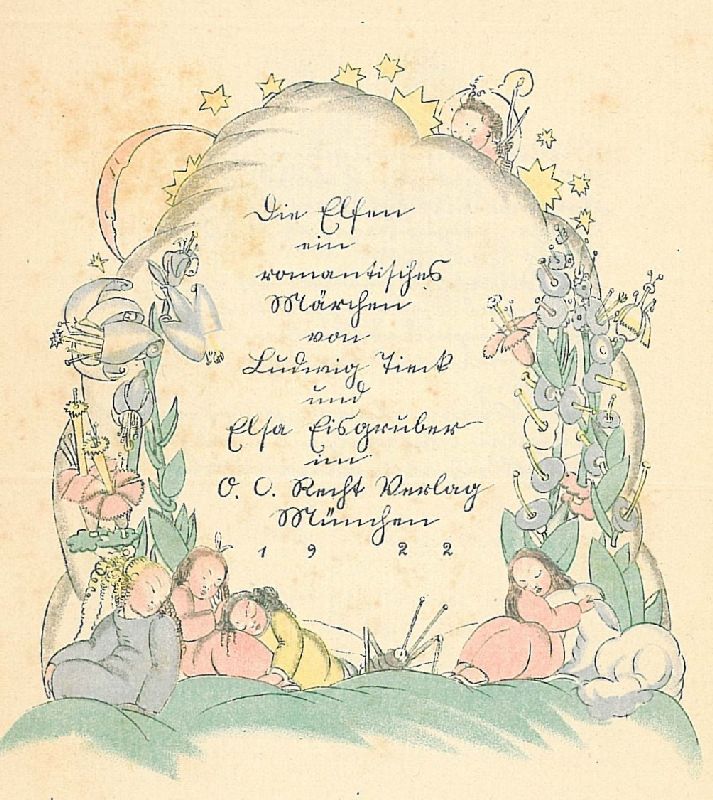 Die Elfen
ein
romantisches
Märchen
von
Ludwig Tieck
und
Elsa Eisgruber
im
O. C. Recht Verlag
München
1922